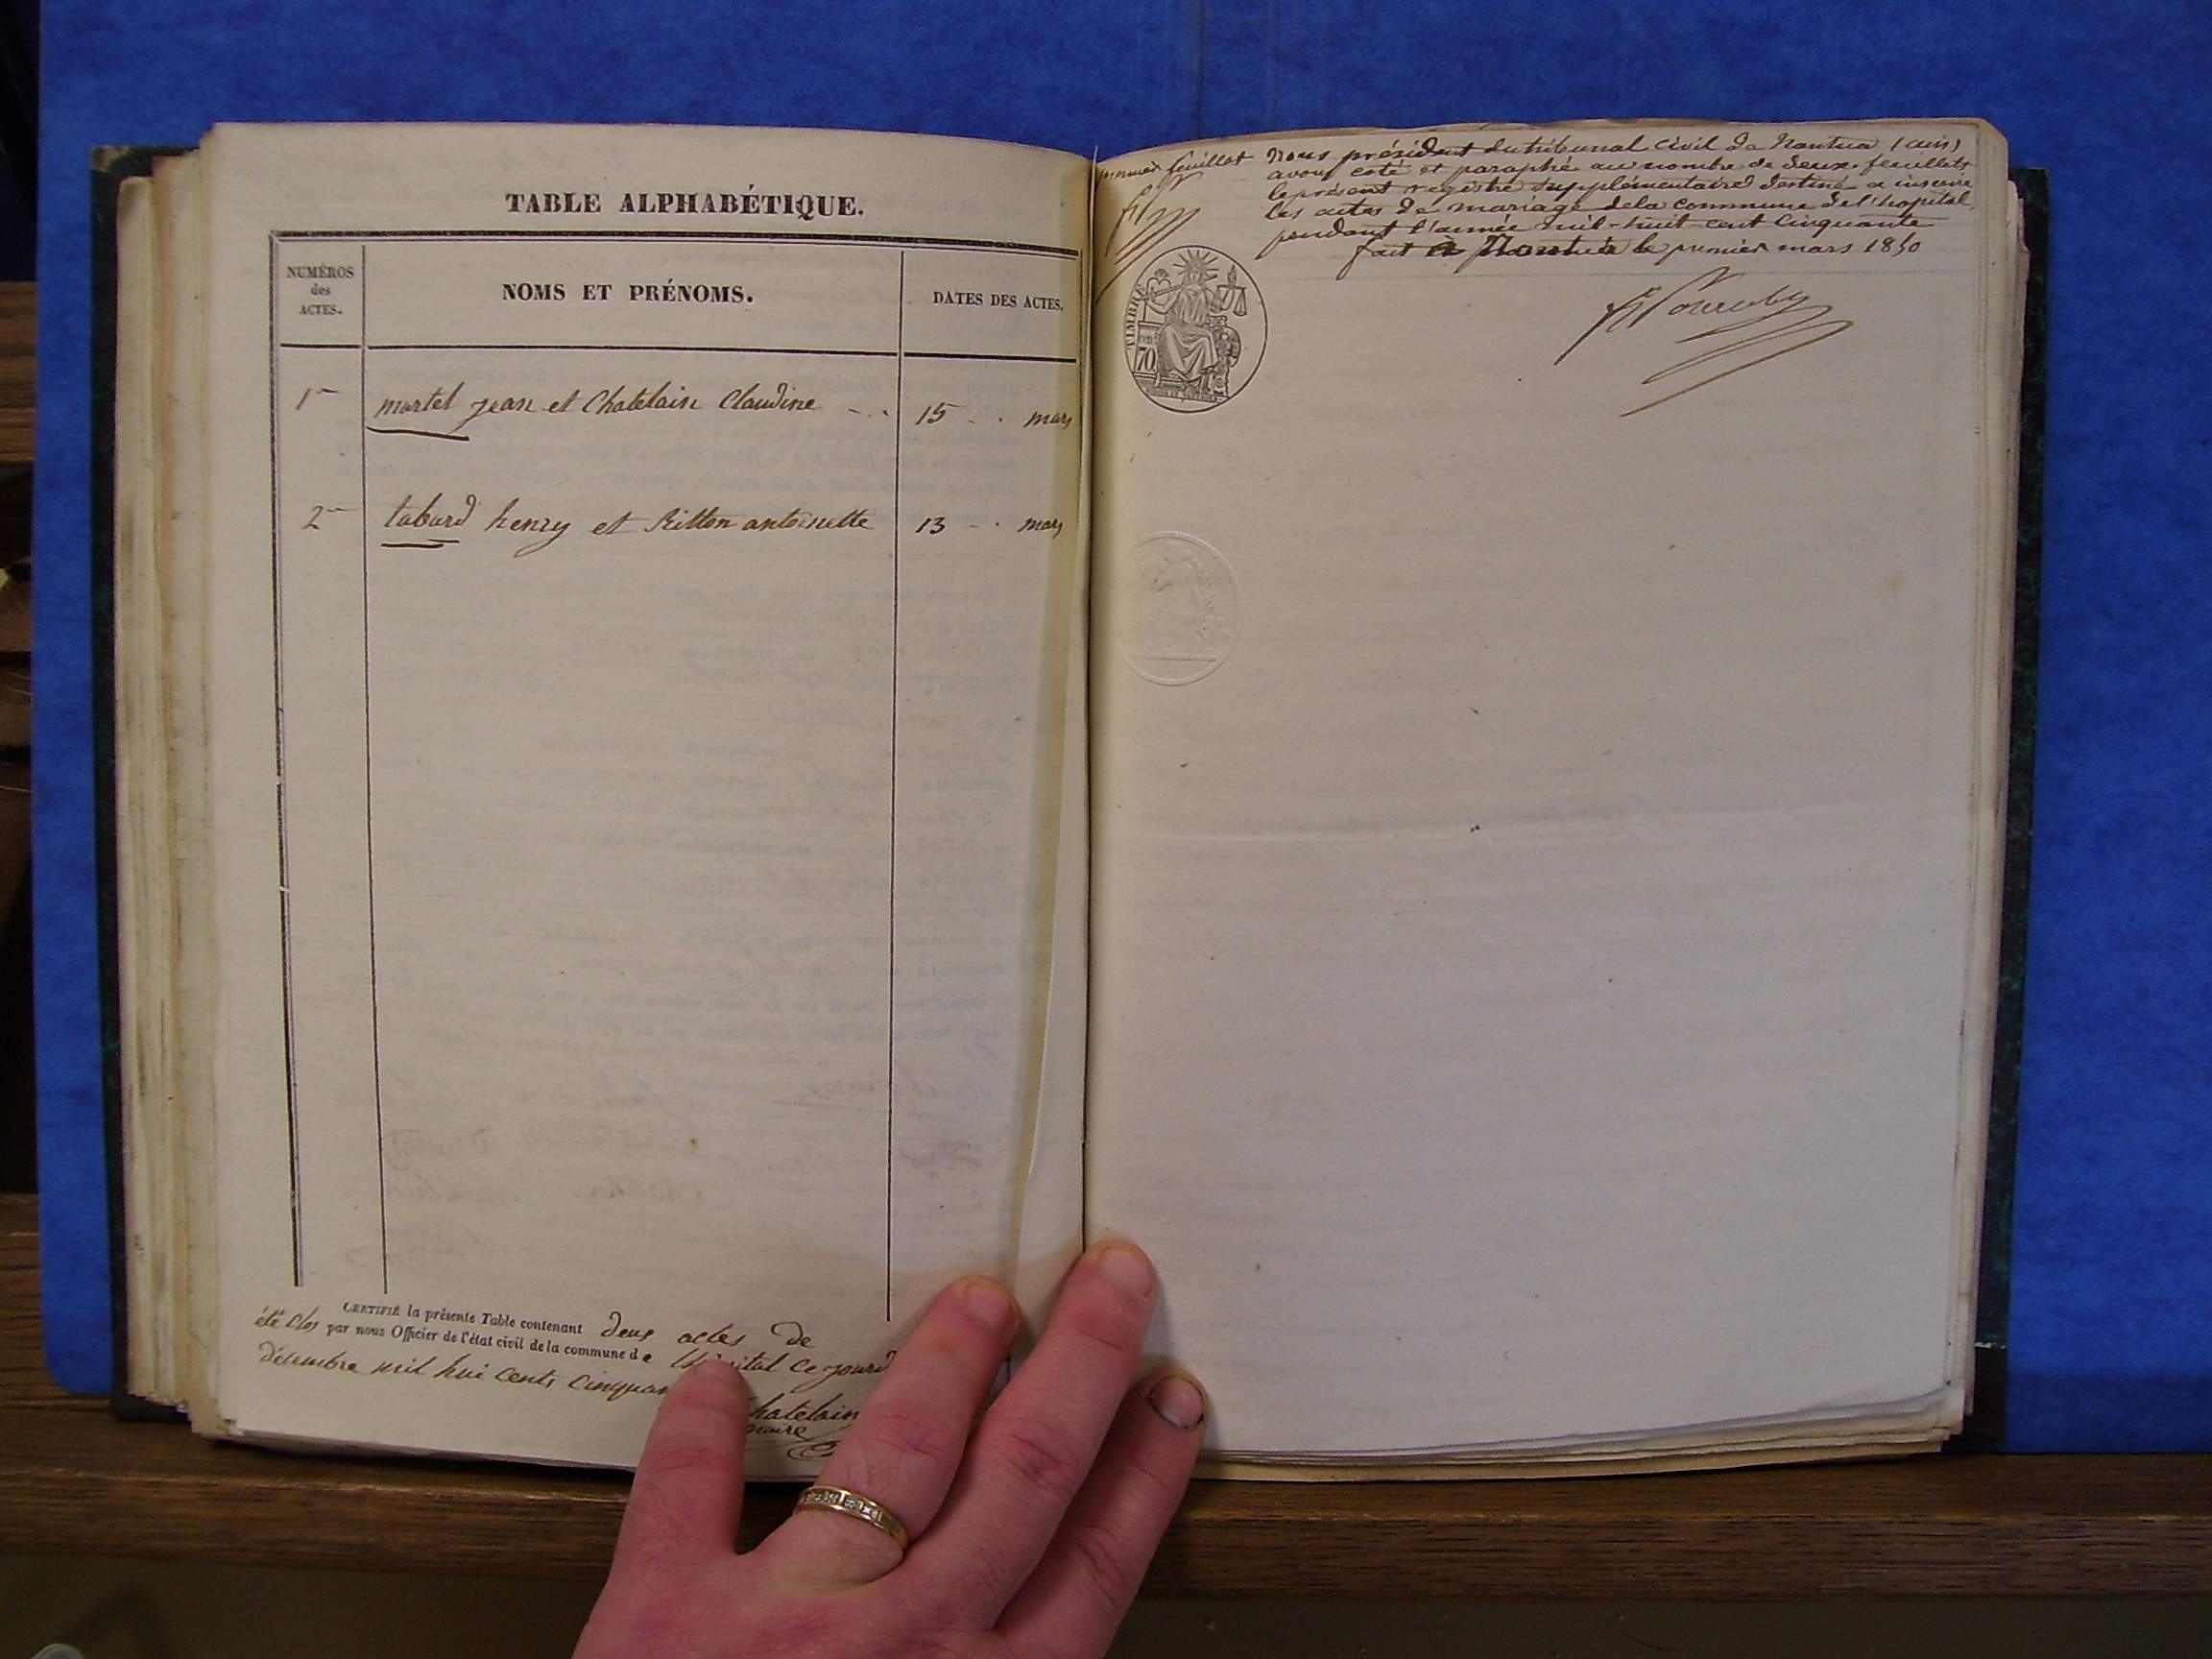 TABLE ALPHABÉTIQUE.
NUMÉROS
des
ACTES.
NOMS ET PRÉNOMS.
DATES DES ACTES.
1 martel jean et Chatelain Claudine 15 mars
2 tabard henry et Ritton antoinette 13 mars
CERTIFIÉ la présente Table contenant deux actes de
été clos par nous Officier de l'état civil de la commune de l'hôpital ce jourd
décembre mil hui cents cinquan
hatelain
maire
premier feuillet
Nous président du tribunal civil de Nantua (ain)
avons coté et paraphé au nombre de deux feuillets
le présent registre supplémentaire destiné a inscrire
les actes de mariage dela commune del'hopital
pendant l'année mil-huit cent cinquante
fait a Nantua le premier mars 1850
TIMBRE
70